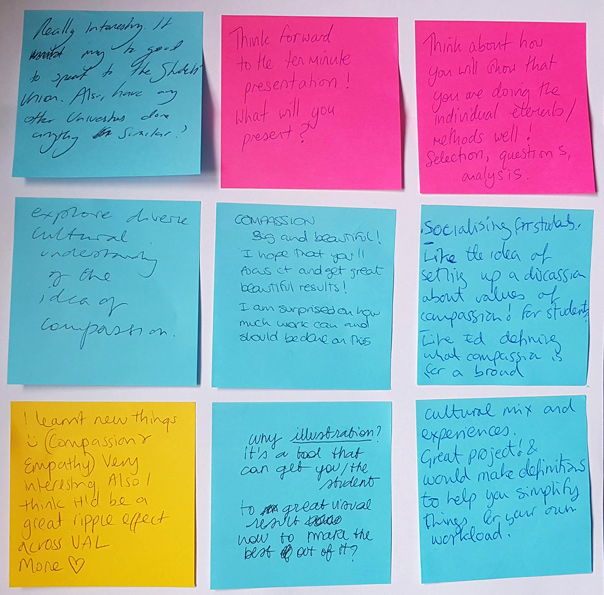 Really Interesting. It
my to good
to speak to the Student
Union. Also, have any
other Universities done
anything Similar?
Think forward
to the ten minute
presentation!
What will you
present?
Think about how
you will show that
you are doing the
individual elements/
methods well!
Selection, questions,
analysis.
explore diverse
cultural
understanding
of the
idea of
compassion.
COMPASSION
Big and beautiful!
I hope that you'll
focus it and get great
beautiful results!
I am surprised on how
much work can and
should be done on this
Socialising for students.
Like the idea of
setting up a discussion
about values of
compassion! for students
Like Id defining
what compassion is
for a broad
! learnt new things
☺ (Compassion &
Empathy) Very
interesting Also I
think it'd be a
great ripple effect
across UAL
More ♡
Why illustration?
it's a tool that
can get you/the
student
to great visual
result
how to make the
best of out of it?
cultural mix and
experiences.
Great project! &
would make definitions
to help you simplify
things for your own
workload.